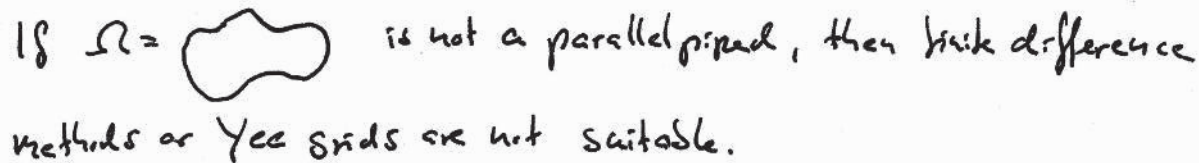 If Ω = is not a parallelpiped, then finite difference
methods or Yee grids are not suitable.